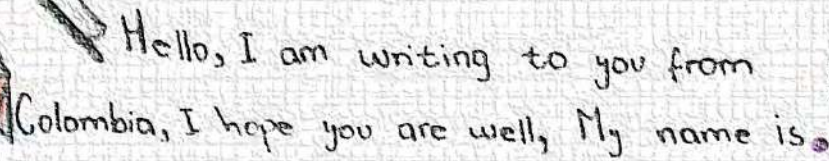 Hello, I am writing to you from
Colombia, I hope you are well, My name is.